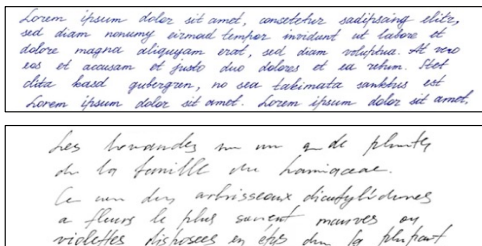 Lorem ipsum dolor sit amet, consetetur sadipscing elitr,
sed diam nonumy eirmod tempor invidunt ut labore et
dolore magna aliquyam erat, sed diam voluptua. At vero
eos et accusam et justo duo dolores et ea rebum. Stet
clita kasd gubergren, no sea takimata sanktus est
Lorem ipsum dolor sit amet. Lorem ipsum dolor sit amet,
Les lavandes de plantes
de la famille
Ce arbrisseaux dicotylédones
a fleurs le plus souvent mauves ou
violettes disposées en épis la plupart